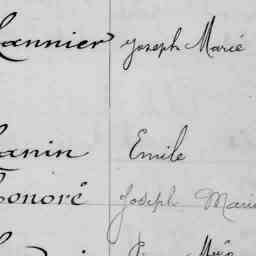 Lannier Joseph Marie
Lanin Emile
Honoré Joseph Marie